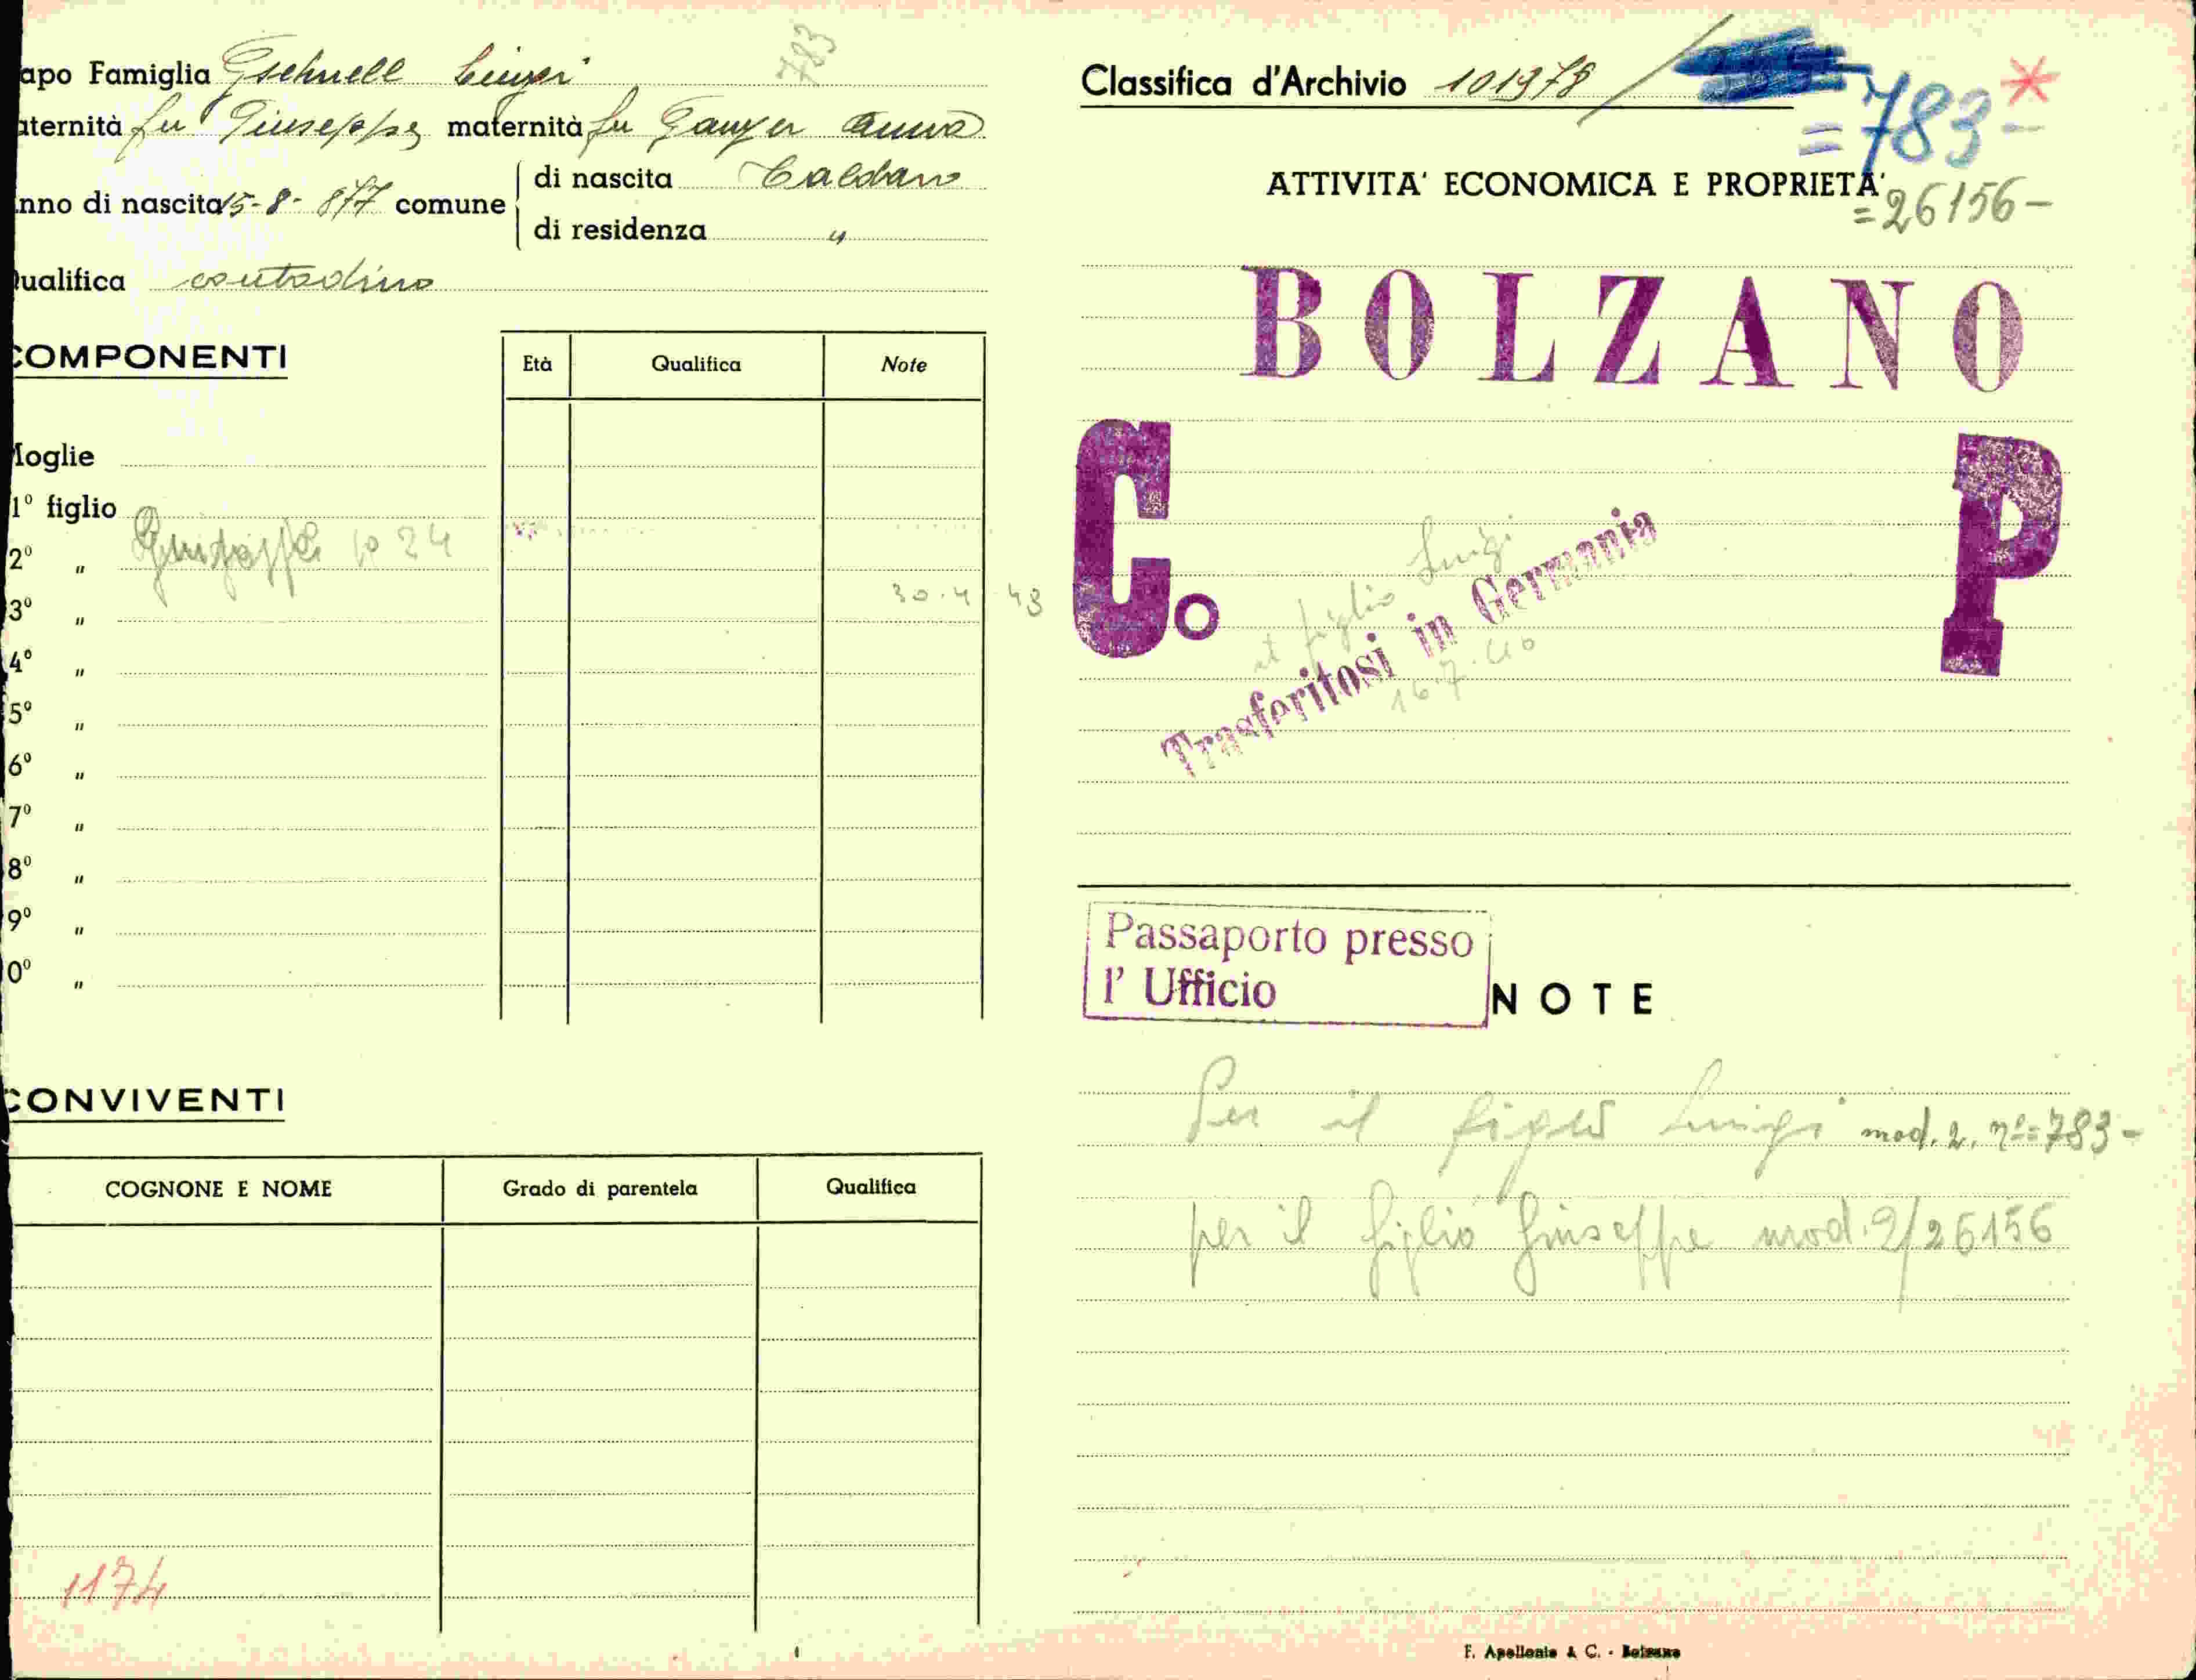 apo Famiglia Gschnell Luigi 783
aternità fu Giuseppe maternità fu Ganzer Anna
nno di nascita 15-8-877 comune di nascita Caldaro
di residenza "
ualifica contadino
COMPONENTI Età Qualifica Note
Moglie
1º figlio
2º " Giuseppe 24
3º " 30.4.43
4º "
5º "
6º "
7º "
8º "
9º "
0º "
CONVIVENTI
COGNONE E NOME Grado di parentela Qualifica
1174
Classifica d'Archivio 101978 / =783- *
ATTIVITA' ECONOMICA E PROPRIETA'
=26156-
BOLZANO
Co P
il figlio Luigi
Trasferitosi in Germania
16.7.40
Passaporto presso
l' Ufficio
NOTE
Per il figlio Luigi mod. 2. nº=783-
per il figlio Giuseppe mod. 2/26156
F. Apollonio & C. - Bolzano